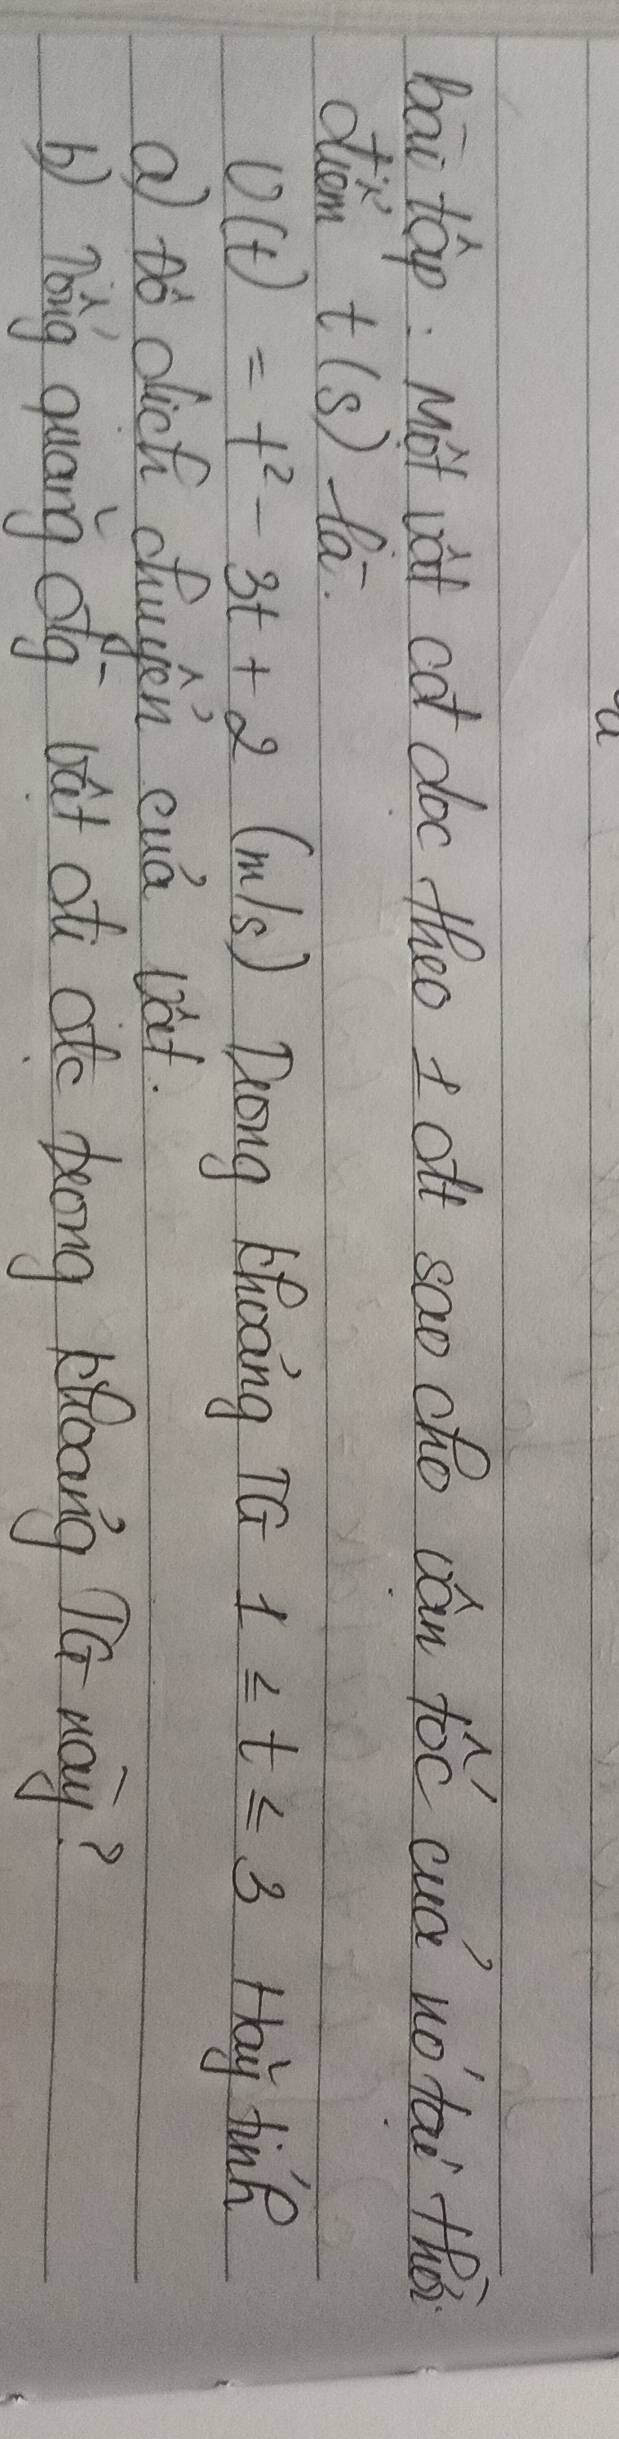 bài tập: Một vật cđ dọc theo 1 đtt sao cho vận tốc của nó tại thời
điểm t(s) là:
v(t) = t² - 3t + 2 (m/s) Trong khoảng TG 1 ≤ t ≤ 3 Hãy tính
a) Độ dịch chuyển của vật.
b) Tổng quãng đg vật đi đtc trong khoảng TG này?